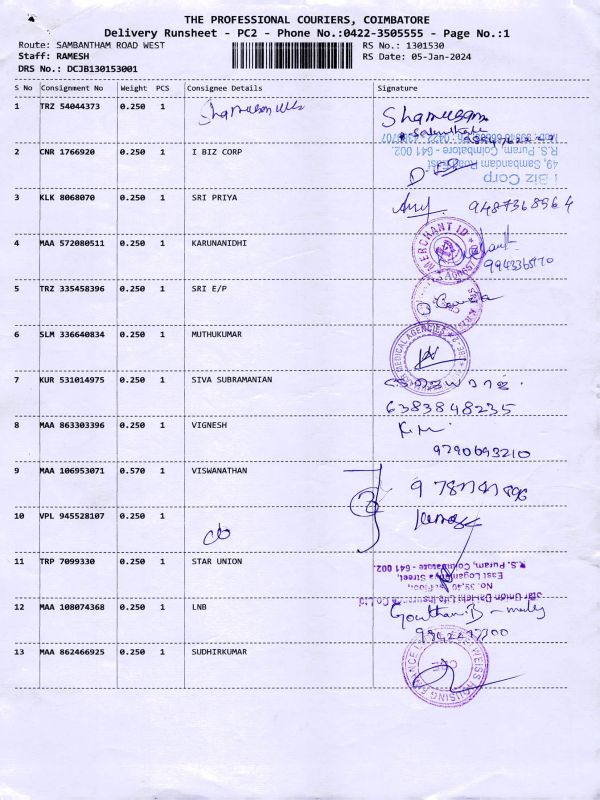 THE PROFESSIONAL COURIERS, COIMBATORE
Delivery Runsheet - PC2 - Phone No.:0422-3505555 - Page No.:1
Route: SAMBANTHAM ROAD WEST RS No.: 1301530
Staff: RAMESH RS Date: 05-Jan-2024
DRS No.: DCJB130153001
S No Consignment No Weight PCS Consignee Details Signature
1 TRZ 54044373 0.250 1
2 CNR 1766920 0.250 1 I BIZ CORP
I Biz Corp
49, Sambandam Road East
R.S. Puram, Coimbatore - 641 002.
3 KLK 8068070 0.250 1 SRI PRIYA 9487368964
4 MAA 572080511 0.250 1 KARUNANIDHI
MERCHANT ID
5 TRZ 335458396 0.250 1 SRI E/P
6 SLM 336640834 0.250 1 MUTHUKUMAR
MEDICAL AGENCIES
7 KUR 531014975 0.250 1 SIVA SUBRAMANIAN
6383848235
8 MAA 863303396 0.250 1 VIGNESH
9790693210
9 MAA 106953071 0.570 1 VISWANATHAN
10 VPL 945528107 0.250 1
11 TRP 7099330 0.250 1 STAR UNION
Star Union Dai-Ichi Life Insurance Co Ltd
R.S. Puram, Coimbatore - 641 002.
12 MAA 108074368 0.250 1 LNB
Gowtham.B
13 MAA 862466925 0.250 1 SUDHIRKUMAR
CBE